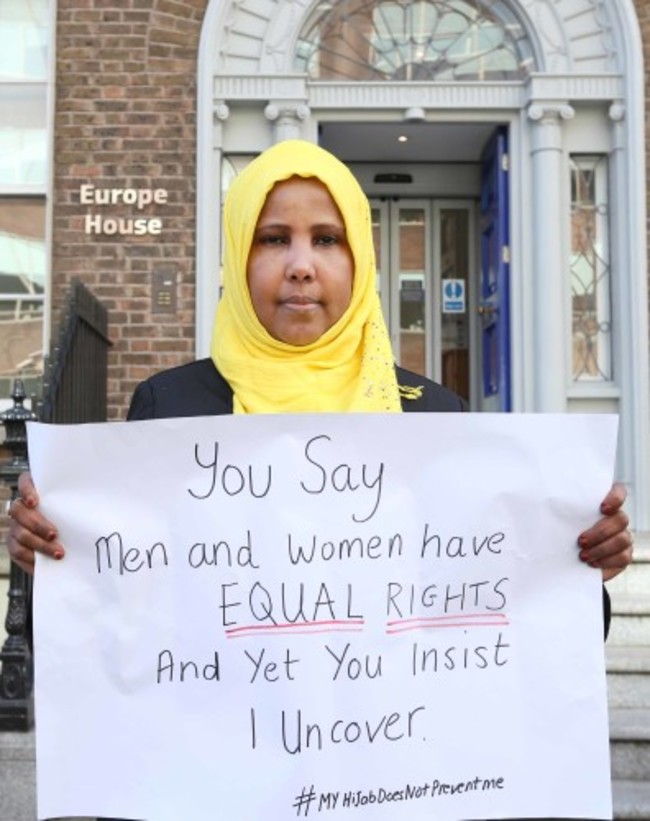 Europe
House
You Say
Men and Women have
EQUAL RIGHTS
And Yet You Insist
I Uncover.
#MYHiJabDoesNotPreventme